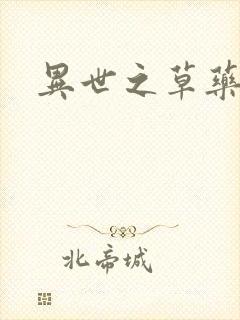 異世之草藥
北帝城